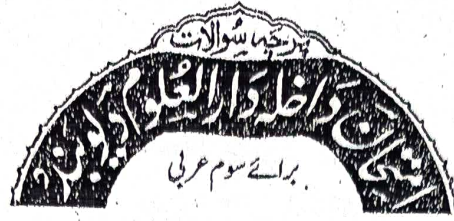 پرچہ سوالات
امتحان داخلہ دارالعلوم دیوبند
برائے سوم عربی